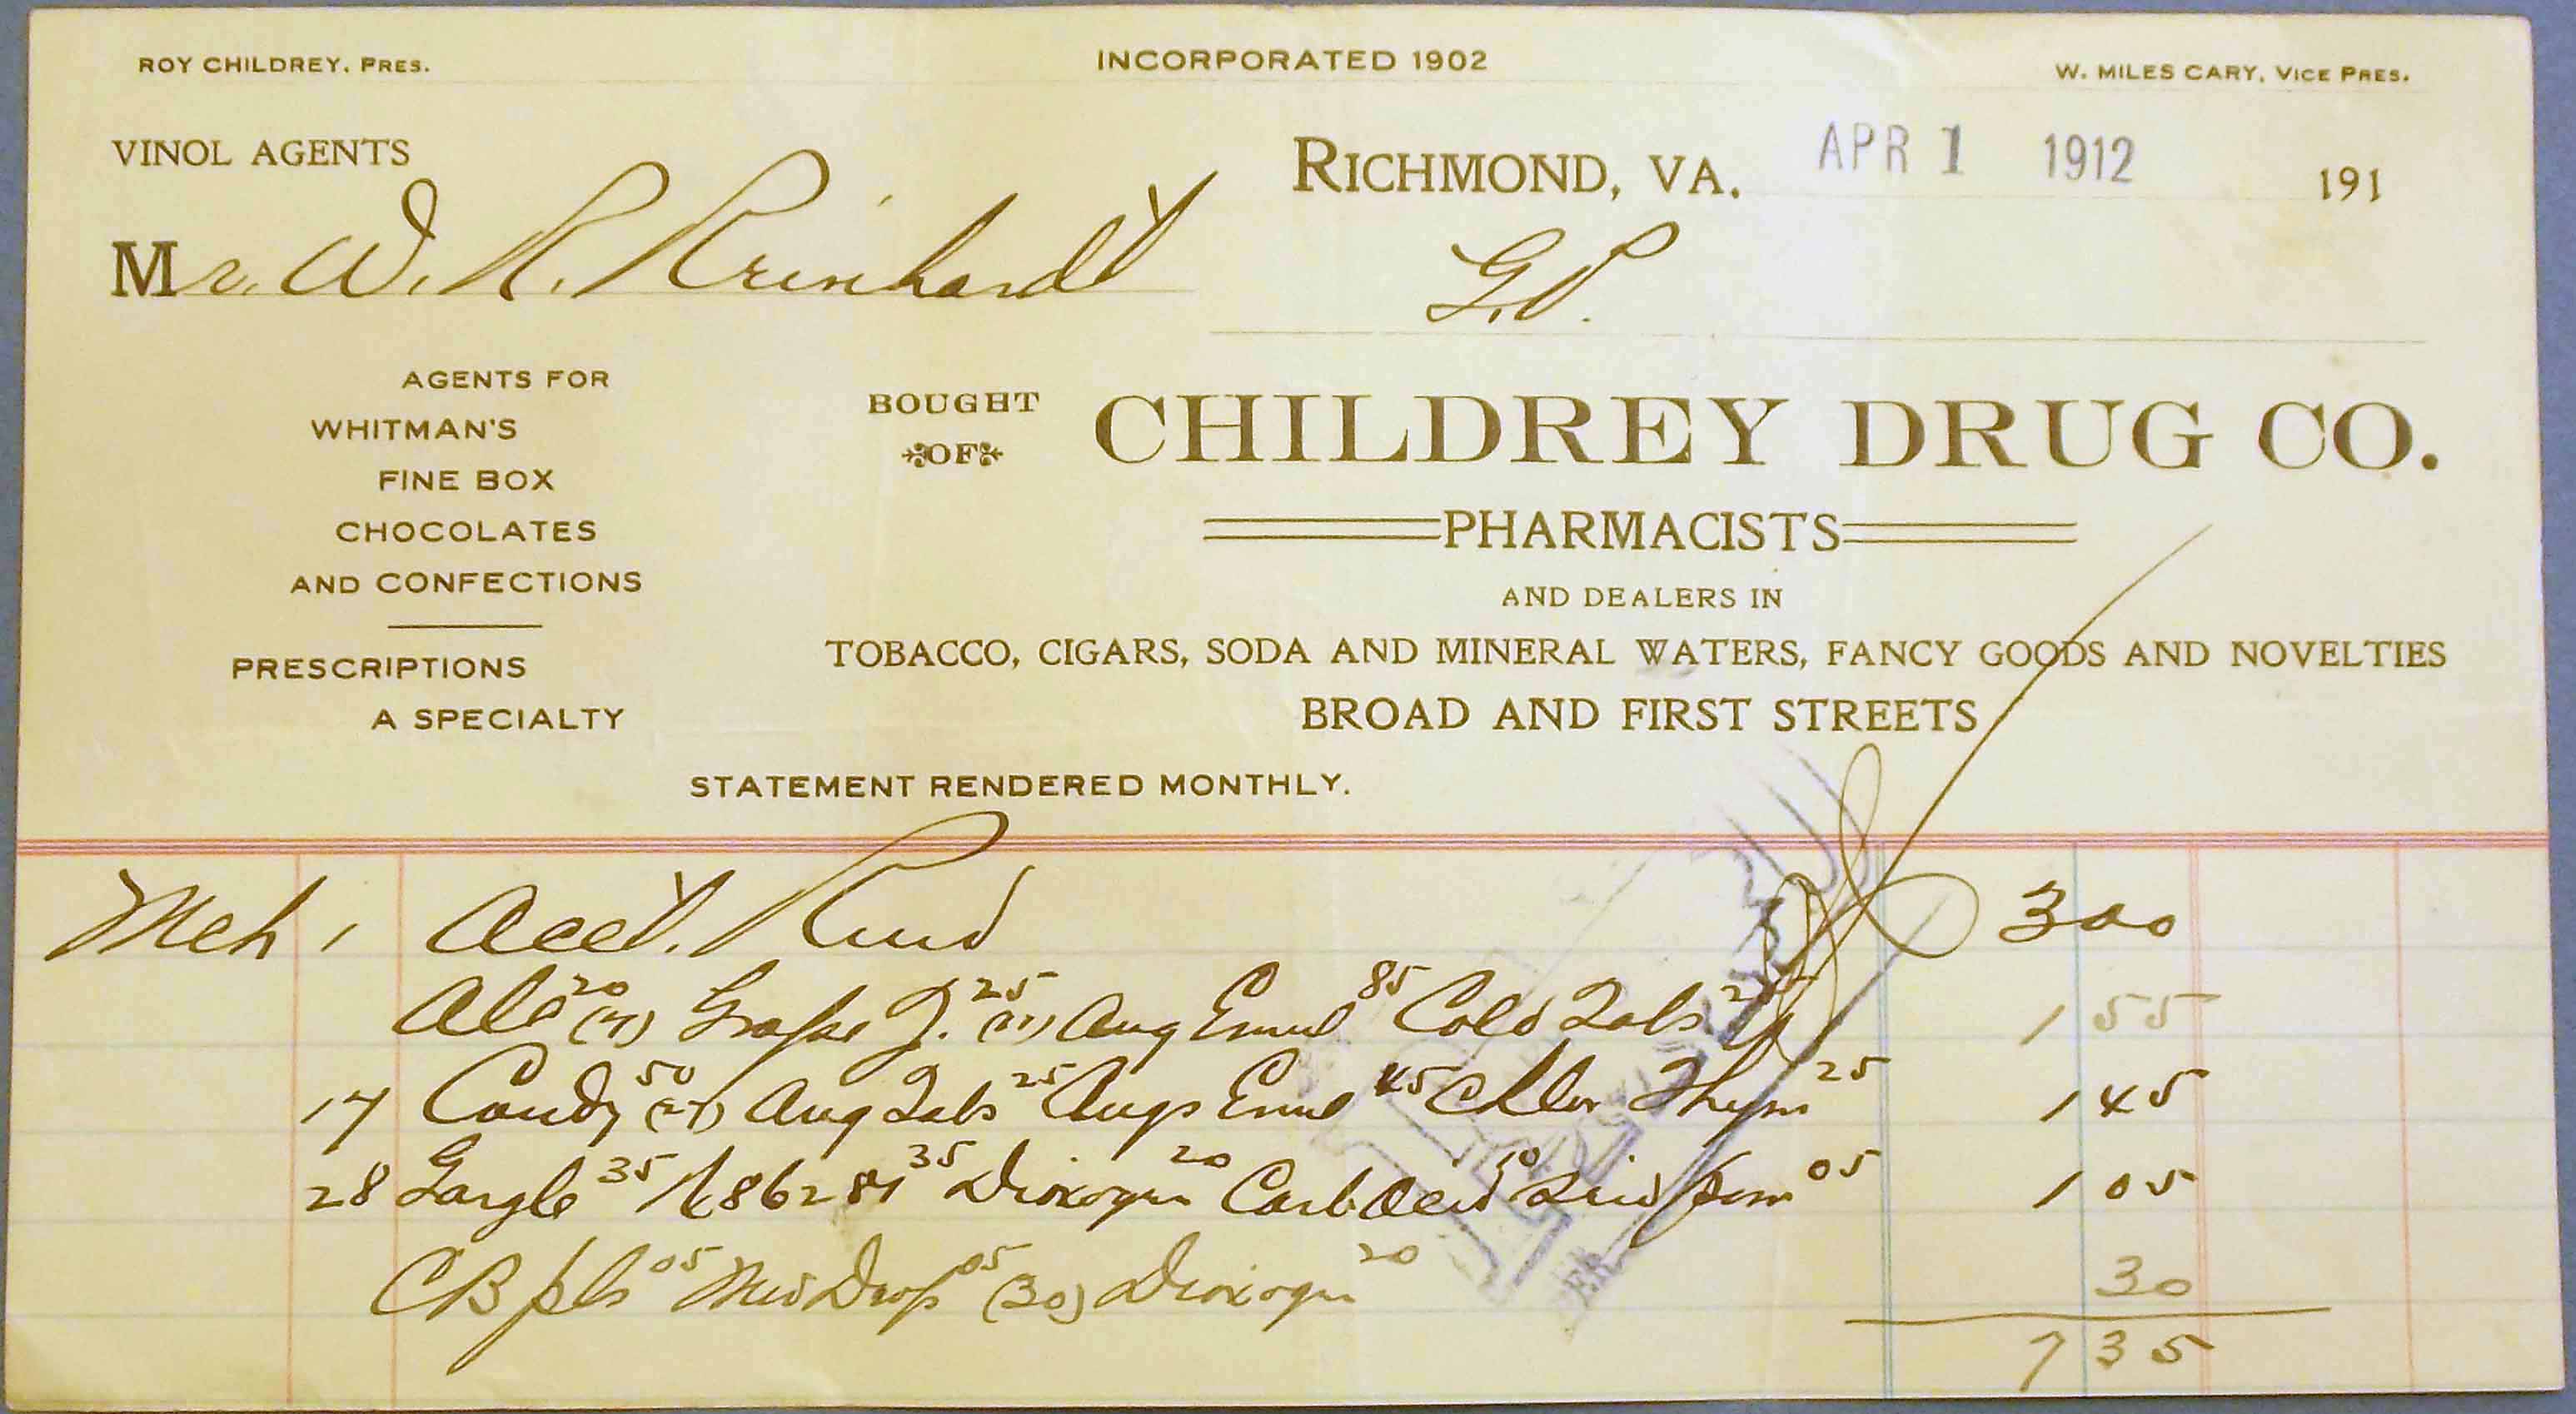 ROY CHILDREY, PRES.
INCORPORATED 1902
W. MILES CARY, VICE PRES.
VINOL AGENTS
RICHMOND, VA. APR 1 1912 191
Mr. W. R. Reinhardt
G.P.
AGENTS FOR
WHITMAN'S
FINE BOX
CHOCOLATES
AND CONFECTIONS
PRESCRIPTIONS
A SPECIALTY
BOUGHT
OF
CHILDREY DRUG CO.
PHARMACISTS
AND DEALERS IN
TOBACCO, CIGARS, SODA AND MINERAL WATERS, FANCY GOODS AND NOVELTIES
BROAD AND FIRST STREETS
STATEMENT RENDERED MONTHLY.
Mch 1 Acct. Rend 300
20 Grape J. 25 (11) Ang Emul 85 Cold Tabs 25 1 55
17 Candy 50 (27) Ang Tabs 25 Angs Emul 45 Chlor Thym 25 1 45
28 Gargle 35 86284 35 Dioxogen 20 Carb Acid 10 05 1 05
CB pls 05 Med Drop 05 (30) Dioxogen 20 30
7 35
PER